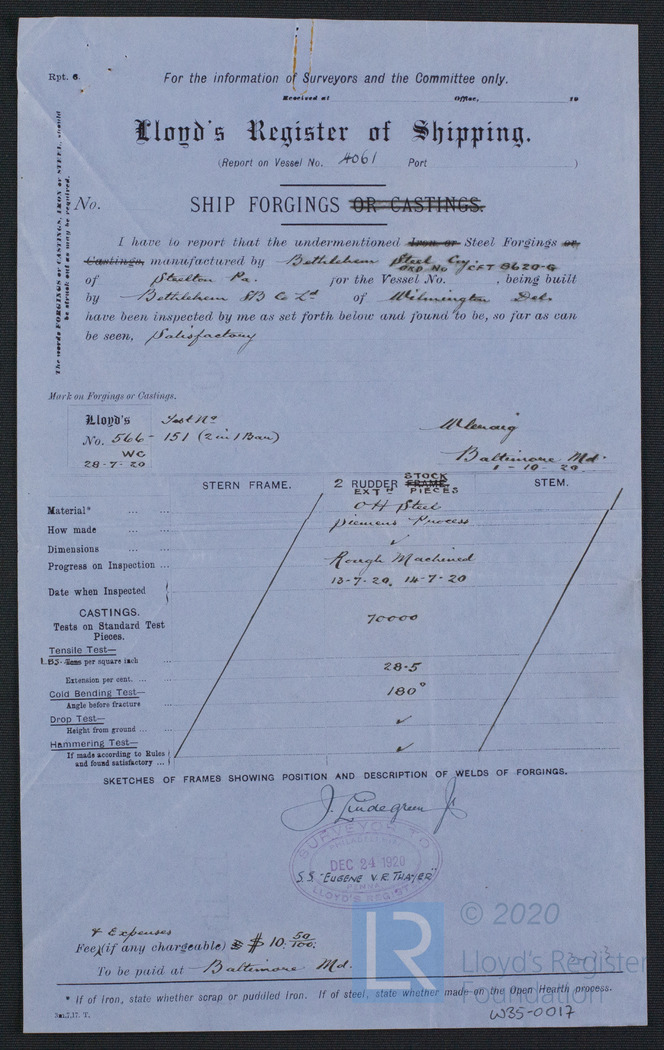 Rpt. 6.
For the information of Surveyors and the Committee only.
Received at Office, 19
Lloyd's Register of Shipping.
(Report on Vessel No. 4061 Port )
The words FORGINGS or CASTINGS, IRON or STEEL, should be struck out as may be required.
No.
SHIP FORGINGS OR CASTINGS.
I have to report that the undermentioned Iron or Steel Forgings or
Castings, manufactured by Bethlehem Steel Coy.
ORD NO CFT 8620-G
of Steelton Pa. for the Vessel No. , being built
by Bethlehem SB Co Ld of Wilmington Del.
have been inspected by me as set forth below and found to be, so far as can
be seen, Satisfactory
Mark on Forgings or Castings.
Lloyd's Test No
No. 566 - 151 (2 in 1 Bar)
WC
28-7-20
Baltimore Md.
1-10-20.
STERN FRAME. 2 RUDDER FRAME. STOCK STEM.
EXTN PIECES
Material* ... ... OH Steel
How made ... ... Siemens Process
Dimensions ... ... ✓
Progress on Inspection ... Rough Machined
Date when Inspected 13-7-20. 14-7-20
CASTINGS.
Tests on Standard Test
Pieces.
70000
Tensile Test—
LBS. Tons per square inch ...
Extension per cent. ... ... 28-5
Cold Bending Test—
Angle before fracture ... 180°
Drop Test—
Height from ground ... ... ✓
Hammering Test—
If made according to Rules
and found satisfactory ... ✓
SKETCHES OF FRAMES SHOWING POSITION AND DESCRIPTION OF WELDS OF FORGINGS.
J. Lindegren Jr
SURVEYOR TO
PHILADELPHIA
DEC 24 1920
S.S. "EUGENE V.R. THAYER"
PENNA
LLOYD'S REGISTER
& Expenses
Fee (if any chargeable) $ 10. 50/100.
To be paid at Baltimore Md.
* If of Iron, state whether scrap or puddled Iron. If of steel, state whether made on the Open Hearth process.
3m,7,17. T.
W35-0017
LR
© 2020
Lloyd's Register
Foundation